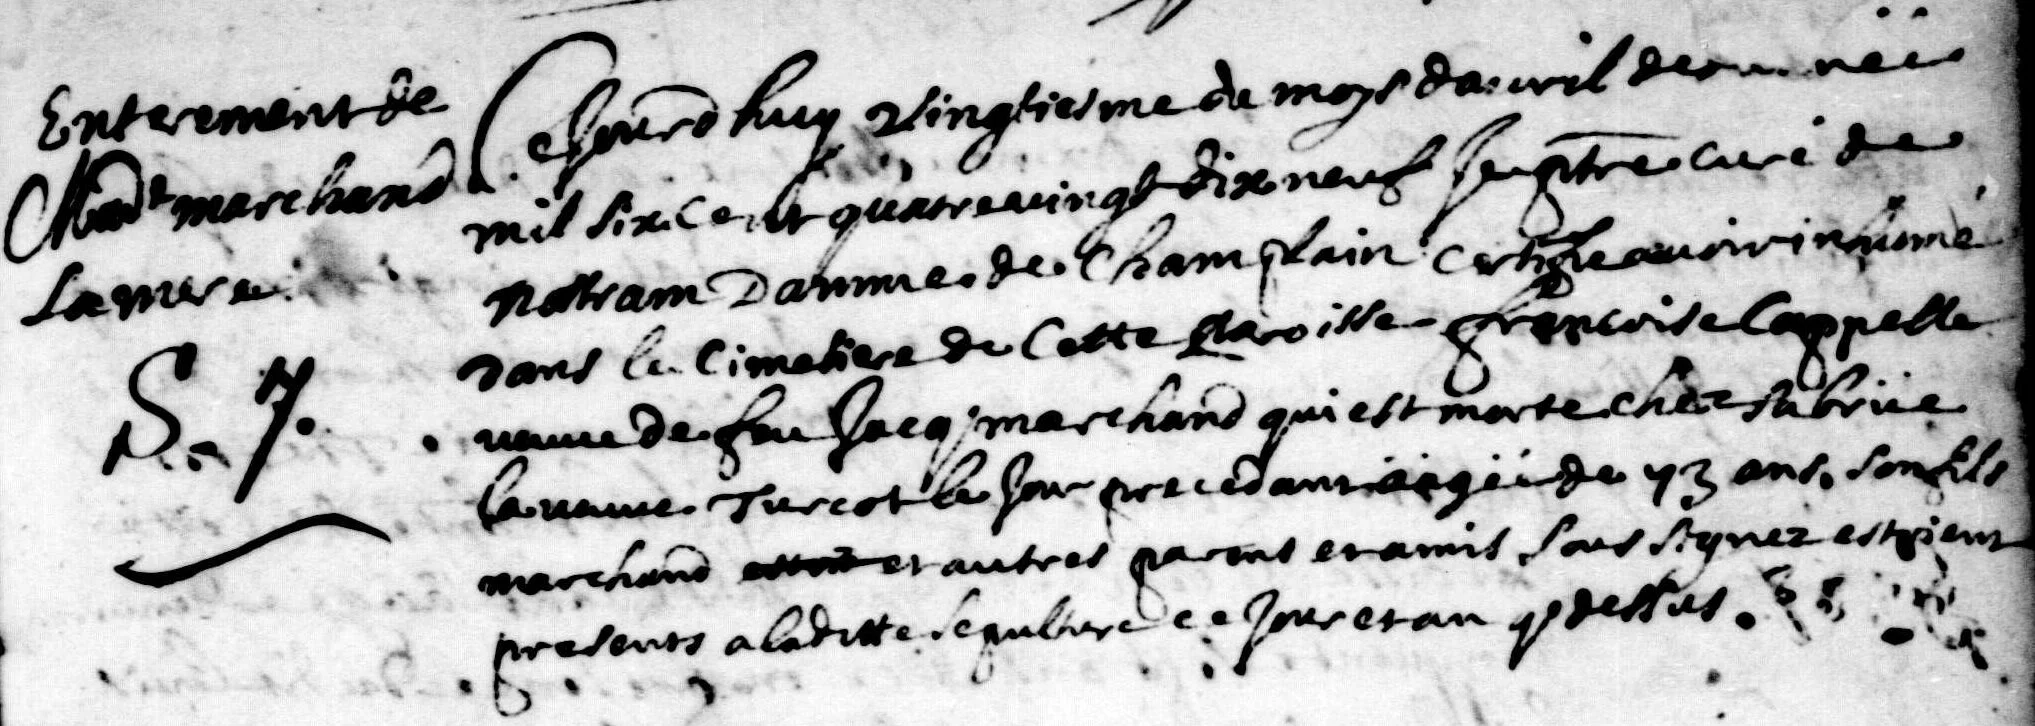 Enterement de
Mad^e marchand
la mere
S. 7.
Ce Jourdhuy vingtiesme du moys dauvril de année
mil six cent quatrevingt dix neuf Je p̄tre curé de
nostram Damme de Champlain certifie avoir inhumé
dans le Cimetiere de Cette paroisse francoise Cappelle
veuve de feu Jacq marchand qui est morte chez sa briie
la veuve Turcot le Jour precedant aagéé de 73 ans. son fils
marchand et autres parens et amis sous signez estoient
presents a laditte sepulture ce Jour et an q dessus.